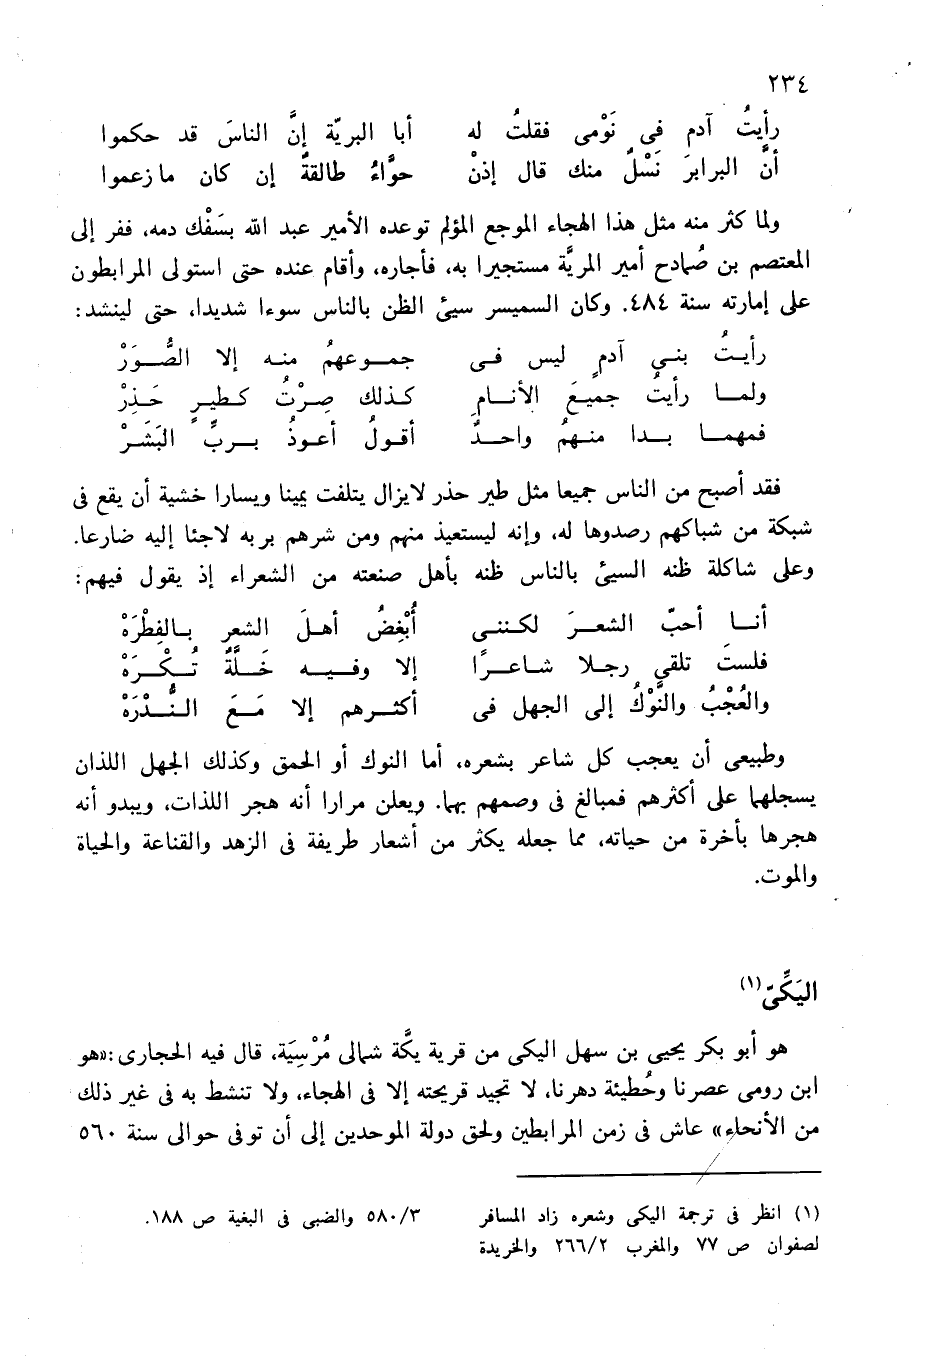 ٢٣٤
رأيتُ آدم فى نَوْمى فقلتُ له أبا البريّة إنَّ الناسَ قد حكموا
أنَّ البرابرَ نَسْلٌ منك قال إذنْ حوَّاءُ طالقةٌ إن كان ما زعموا
ولما كثر منه مثل هذا الهجاء الموجع المؤلم توعده الأمير عبد الله بسَفْك دمه، ففر إلى
المعتصم بن صُمادح أمير المريَّة مستجيرا به، فأجاره، وأقام عنده حتى استولى المرابطون
على إمارته سنة ٤٨٤. وكان السميسر سيئ الظن بالناس سوءا شديدا، حتى لينشد:
رأيتُ بنى آدمٍ ليس فى جموعهمُ منه إلا الصُّوَرْ
ولما رأيتُ جميعَ الأنامِ كذلك صِرْتُ كطيرٍ حَذِرْ
فمهما بدا منهمُ واحدٌ أقولُ أعوذُ بربِّ البَشَرْ
فقد أصبح من الناس جميعا مثل طير حذر لايزال يتلفت يمينا ويسارا خشية أن يقع فى
شبكة من شباكهم رصدوها له، وإنه ليستعيذ منهم ومن شرهم بربه لاجئا إليه ضارعا.
وعلى شاكلة ظنه السيئ بالناس ظنه بأهل صنعته من الشعراء إذ يقول فيهم:
أنا أحبّ الشعرَ لكننى أُبْغِضُ أهلَ الشعرِ بالفِطْرَهْ
فلستَ تلقى رجلا شاعرًا إلا وفيه خَلَّةٌ تُكْرَهْ
والعُجْبُ والنَّوْكُ إلى الجهل فى أكثرهم إلا مَعَ النُّدْرَهْ
وطبيعى أن يعجب كل شاعر بشعره، أما النوك أو الحمق وكذلك الجهل اللذان
يسجلهما على أكثرهم فمبالغ فى وصمهم بهما. ويعلن مرارا أنه هجر اللذات، ويبدو أنه
هجرها بأخرة من حياته، مما جعله يكثر من أشعار طريفة فى الزهد والقناعة والحياة
والموت.
اليَكِّىّ(١)
هو أبو بكر يحيى بن سهل اليكى من قرية يكَّة شمالى مُرْسِيَة، قال فيه الحجارى: «هو
ابن رومى عصرنا وحُطيئة دهرنا، لا تجيد قريحته إلا فى الهجاء، ولا تنشط به فى غير ذلك
من الأنحاء» عاش فى زمن المرابطين ولحق دولة الموحدين إلى أن توفى حوالى سنة ٥٦٠
(١) انظر فى ترجمة اليكى وشعره زاد المسافر
لصفوان ص ٧٧ والمغرب ٢٦٦/٢ والخريدة
٥٨٠/٣ والضبى فى البغية ص ١٨٨.